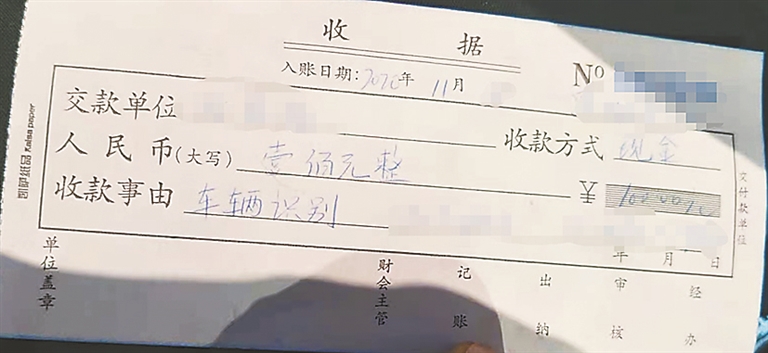 收 据
入账日期:2020年 11月
No
交款单位
人民币(大写) 壹佰元整 收款方式 现金
收款事由 车辆识别 ¥ 100.00元
年 月 日
单位盖章 财会主管 记账 出纳 审核 经办
交付款单位
Kaisa paper